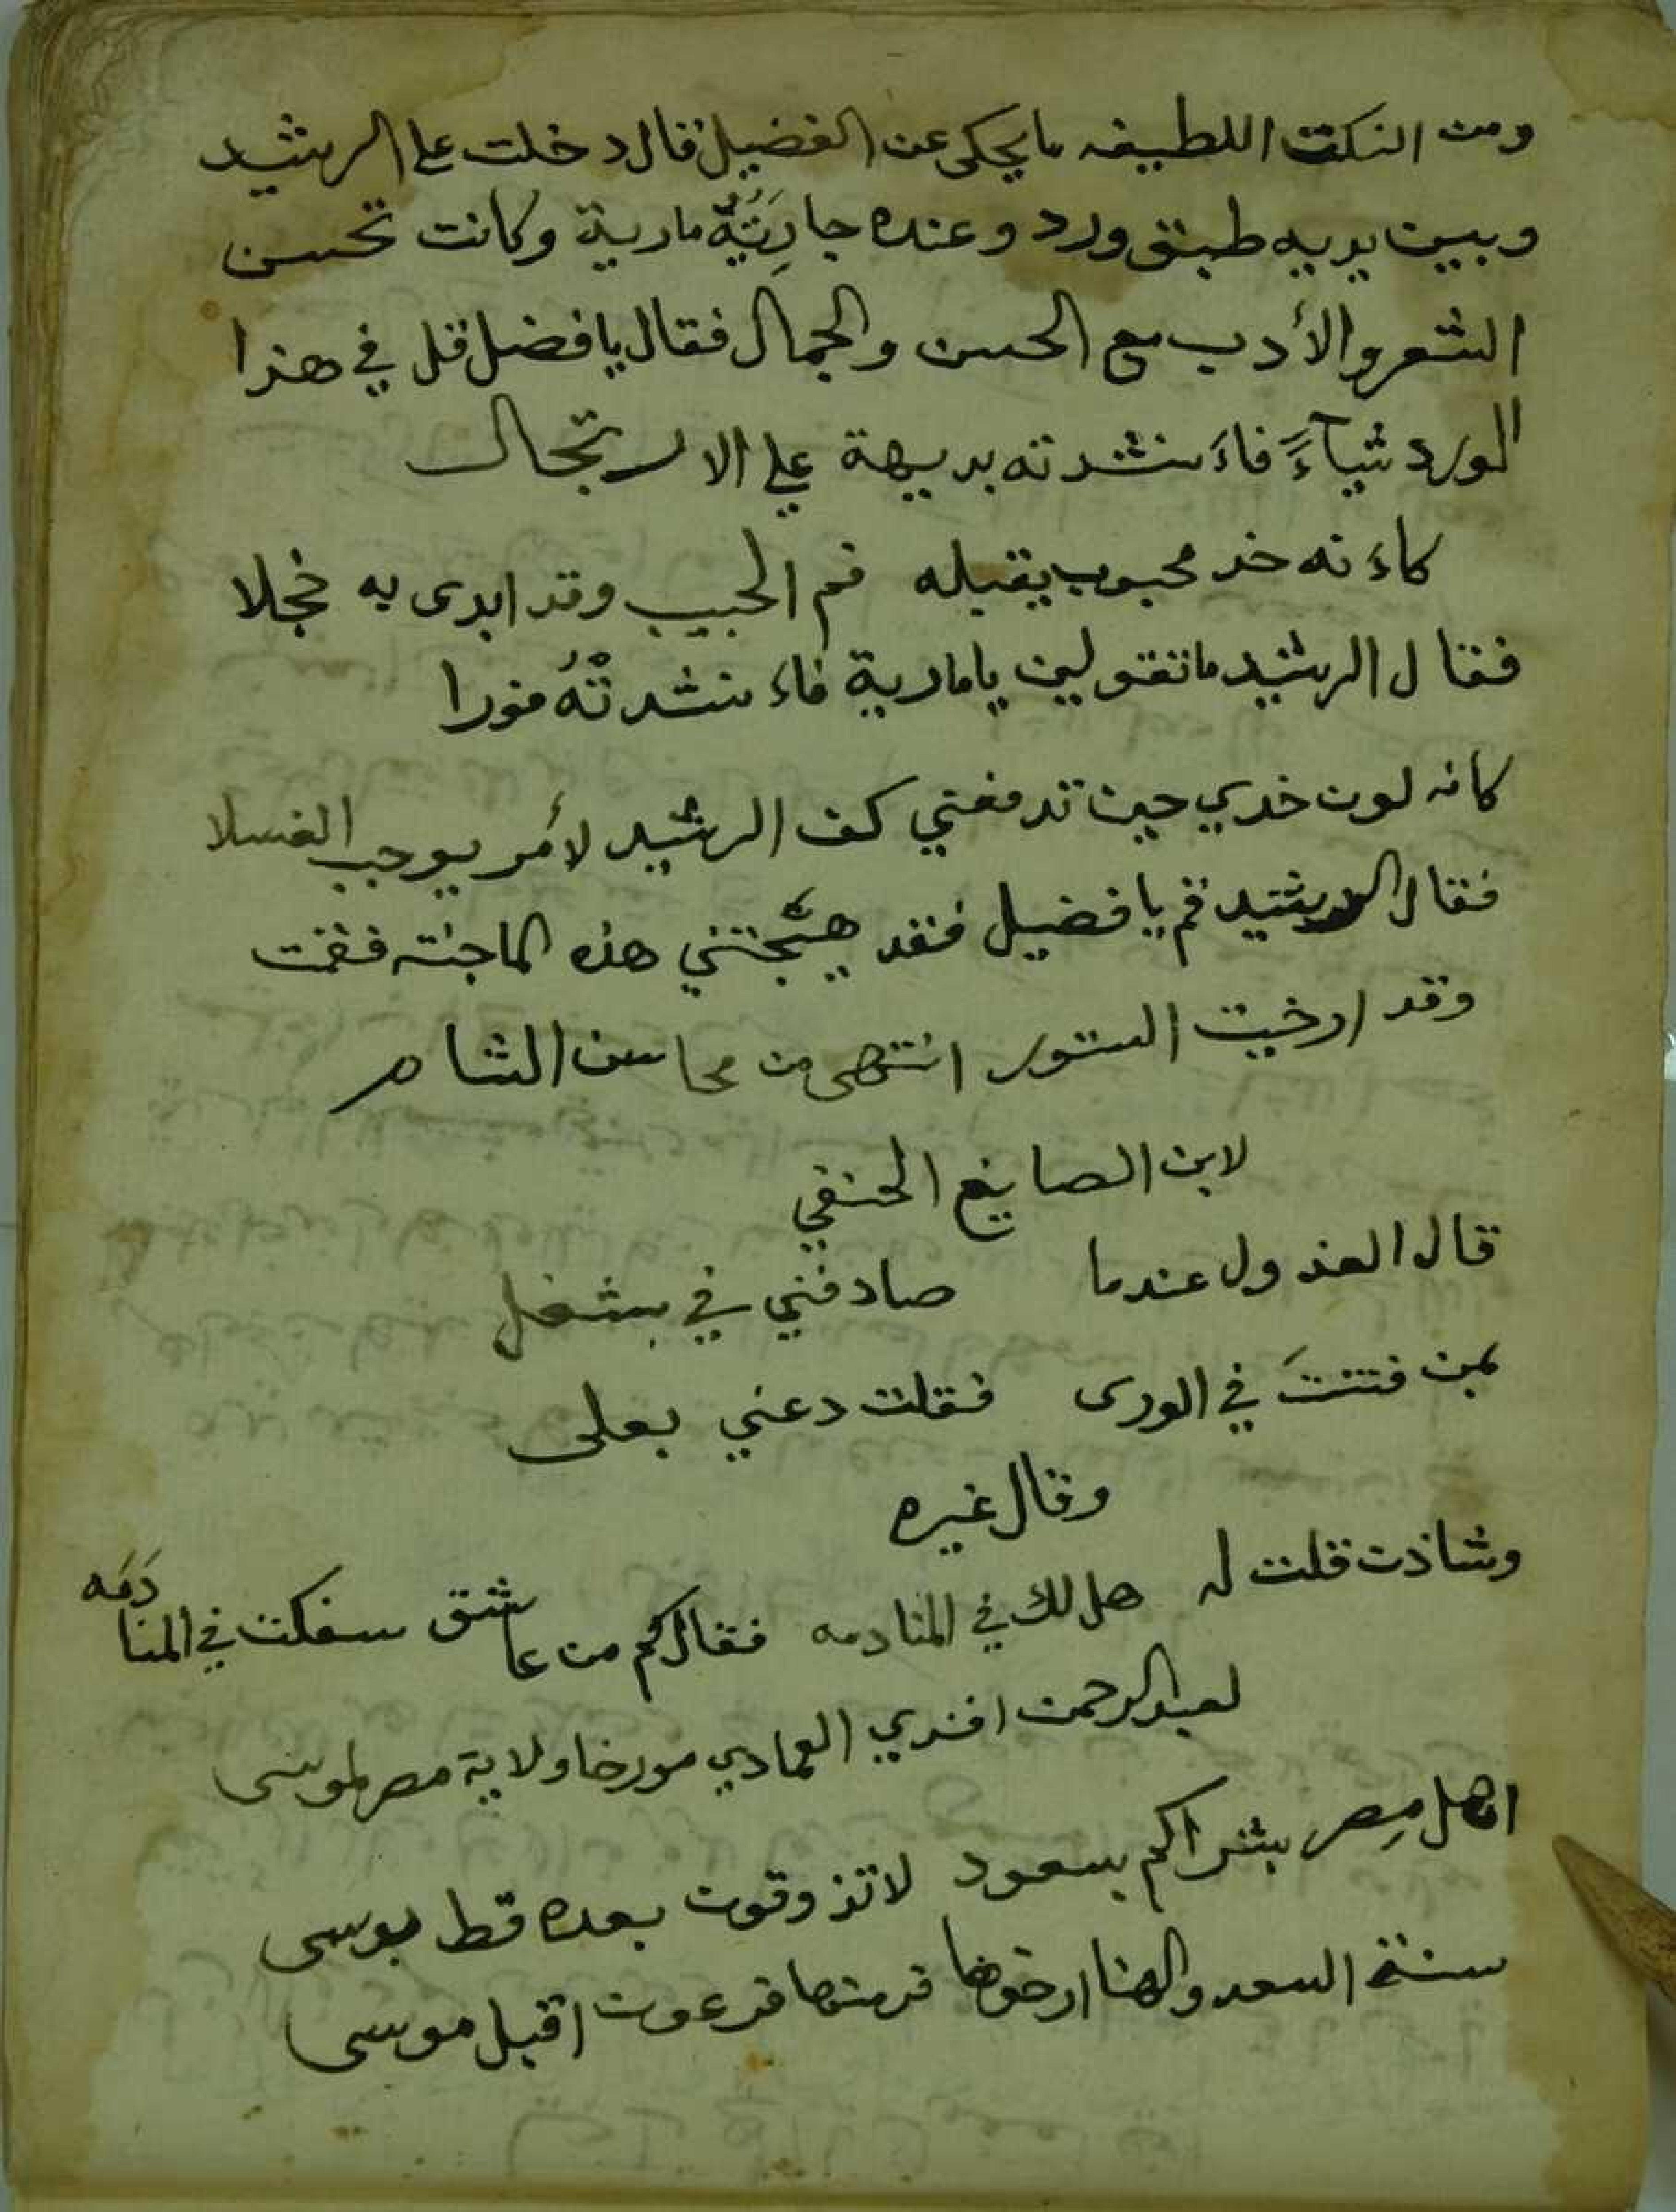 ومن النكت اللطيفه ما يحكى عن الفضيل قال دخلت على الرشيد
وبين يديه طبق ورد وعنده جارِيَتُهُ مارية وكانت تحسن
الشعر والأدب مع الحسن والجمال فقال يا فضل قل في هذا
الورد شيآءً فاءَنشدته بديهة على الارتجال
كاءَنه خد محبوب يقبله فم الحبيب وقد ابدى به خجلا
فقال الرشيد ما تقولين يا مارية فاءَنشدتْهُ فورا
كانه لون خدي حين تدفعني كف الرشيد لأمر يوجب الغسلا
فقال الرشيد قم يا فضيل فقد هيَّجتني هذه الماجنه فقمت
وقد ارخيت الستور انتهى من محاسن الشام
لابن الصايغ الحنفي
قال العذول عندما صادفني في شغل
بمن فتنتَ في الورى فقلت دعني بعلى
وقال غيره
وشاذن قلت له هل لك في المنادمه فقال كم من عاشق سفكت في المنا دَمَه
لعبد الرحمن افندي العمادي مورخا ولاية مصر لموسى
اهل مِصر بشراكم بسعود لا تذوقون بعده قط بوسى
سنة السعد والهنا ارخوها فر منها فرعون اقبل موسى